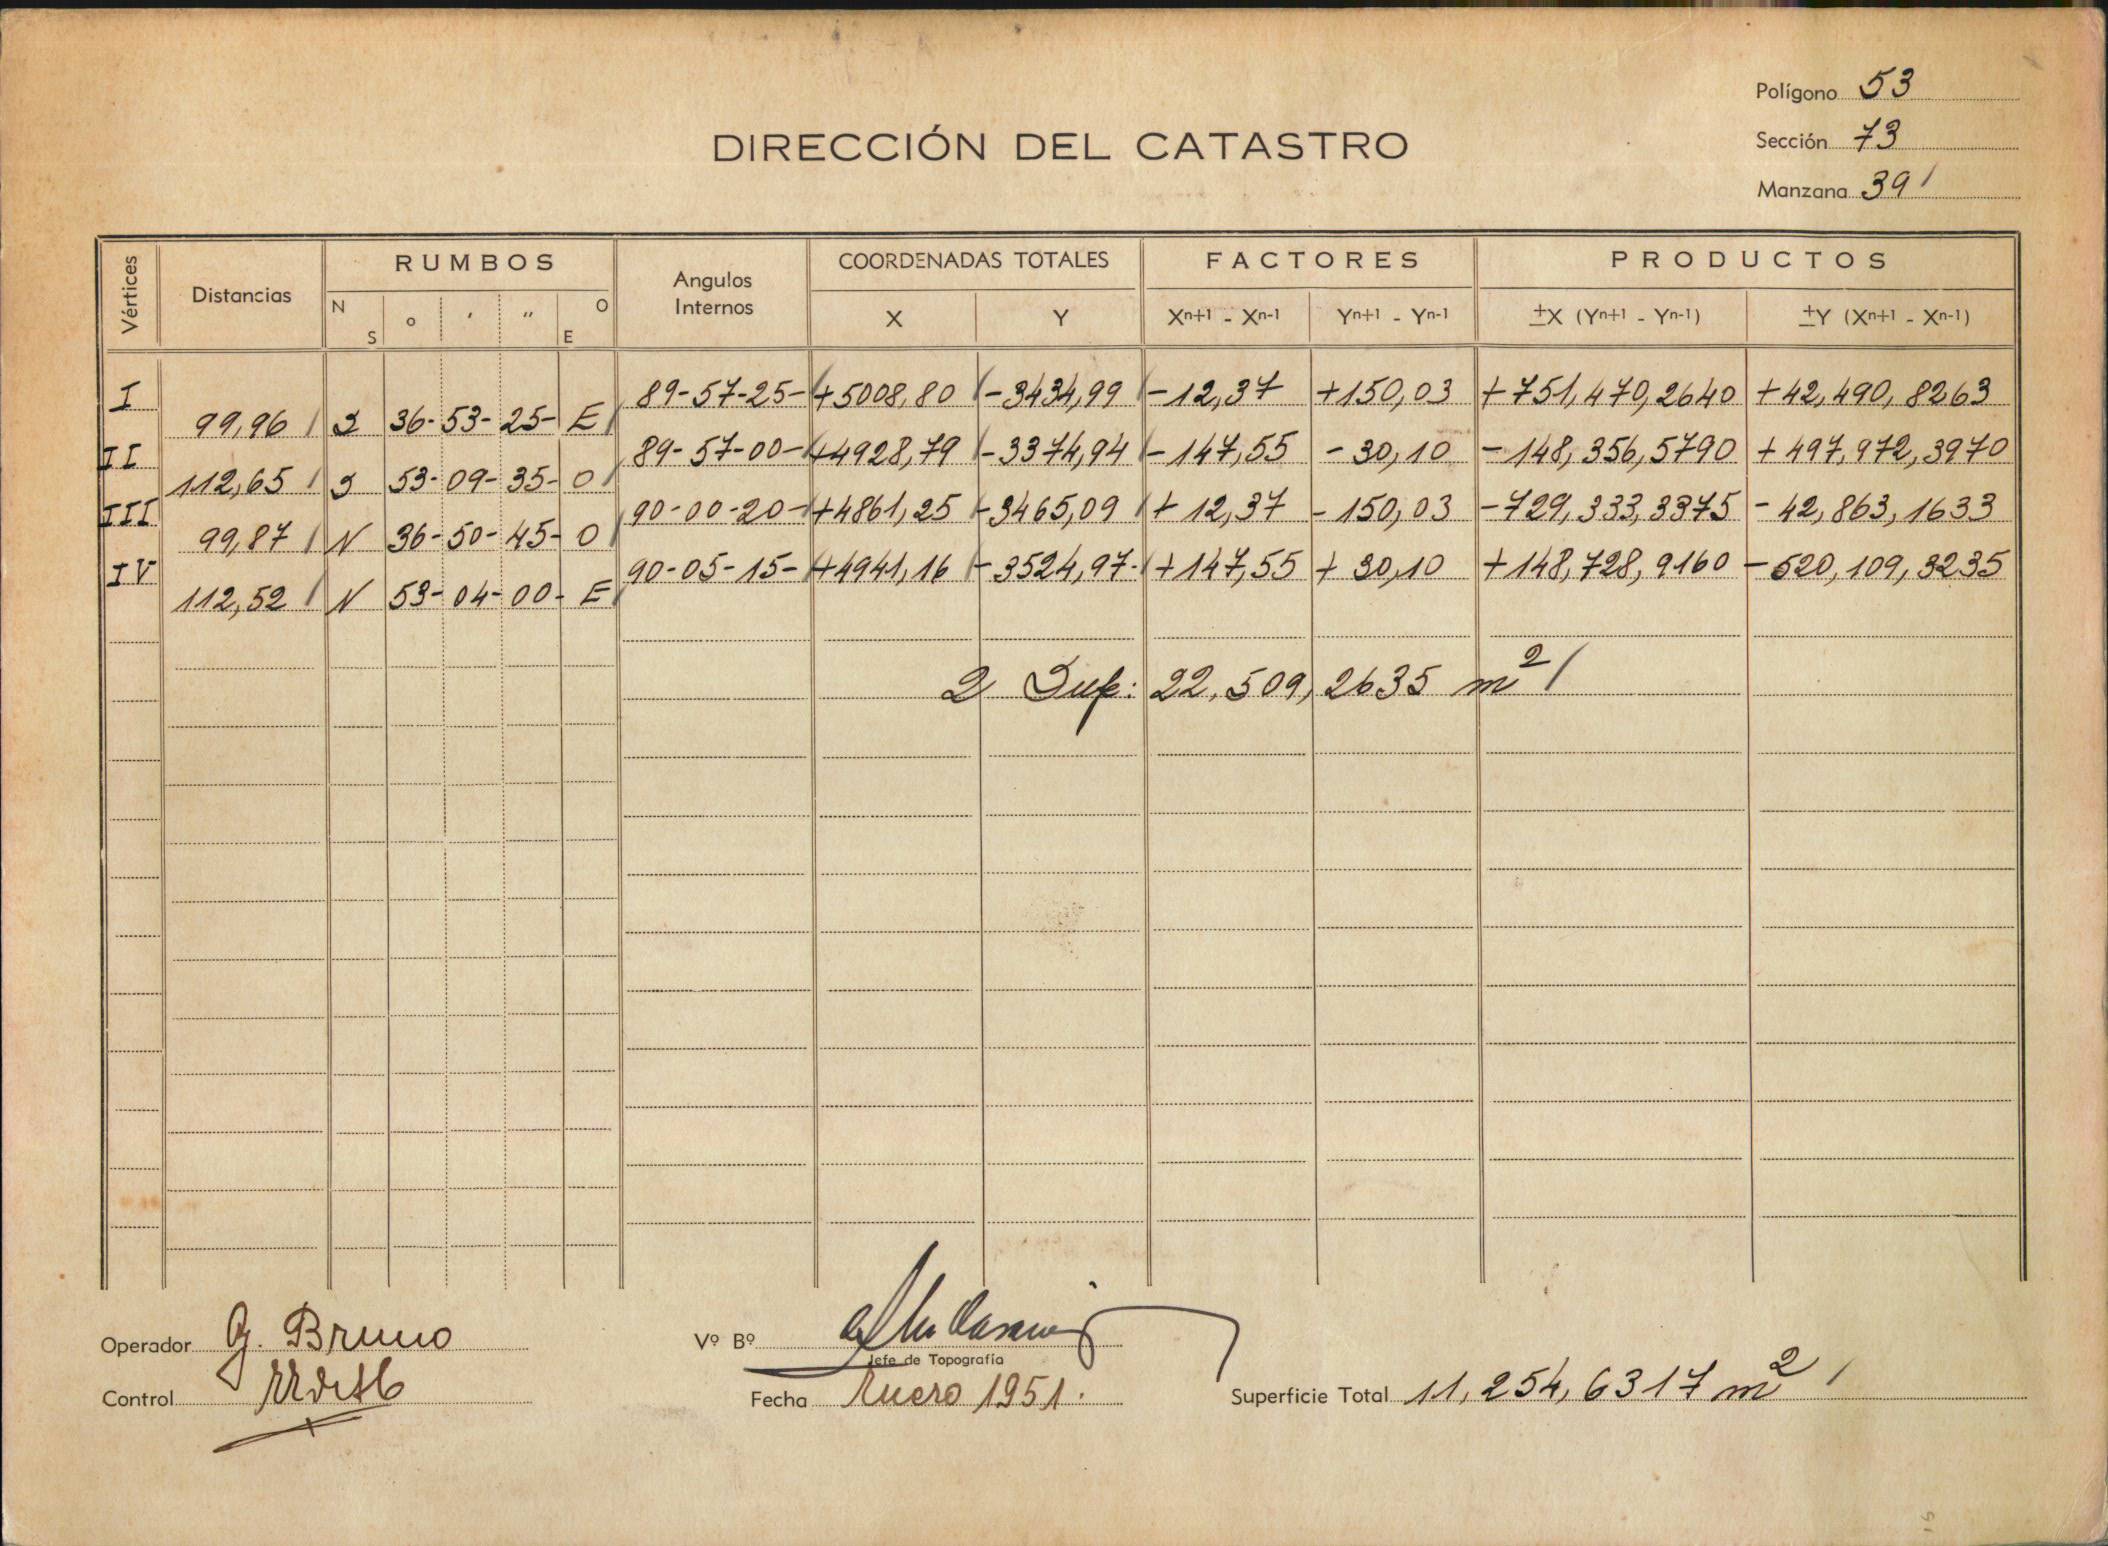 Polígono 53
DIRECCIÓN DEL CATASTRO
Sección 73
Manzana 39
Vértices Distancias RUMBOS Angulos Internos COORDENADAS TOTALES FACTORES PRODUCTOS
N S o ' " O E X Y Xn+1 - Xn-1 Yn+1 - Yn-1 ±X (Yn+1 - Yn-1) ±Y (Xn+1 - Xn-1)
I 89-57-25- +5008,80 -3434,99 -12,37 +150,03 +751,470,2640 +42,490,8263
99,96 S 36-53-25- E
II 89-57-00- +4928,79 -3374,94 -147,55 -30,10 -148,356,5790 +497,972,3970
112,65 S 53-09-35- O
III 90-00-20- +4861,25 -3465,09 +12,37 -150,03 -729,333,3375 -42,863,1633
99,87 N 36-50-45- O
IV 90-05-15- +4941,16 -3524,97- +147,55 +30,10 +148,728,9160 -520,109,3235
112,52 N 53-04-00- E
2 Sup: 22.509,2635 m²
Operador G. Bruno
Vº Bº
Jefe de Topografía
Control
Fecha Enero 1951.
Superficie Total 11,254,6317 m²
15